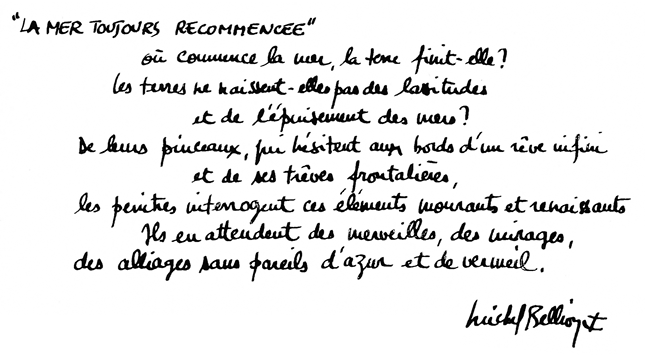 "LA MER TOUJOURS RECOMMENCEE"
où commence la mer, la terre finit-elle?
Les terres ne naissent-elles pas des lassitudes
et de l'épuisement des mers?
De leurs pinceaux, qui hésitent aux bords d'un rêve infini
et de ses trêves frontalières,
les peintres interrogent ces éléments mourants et renaissants
Ils en attendent des merveilles, des mirages,
des alliages sans pareils d'azur et de vermeil.
Michel